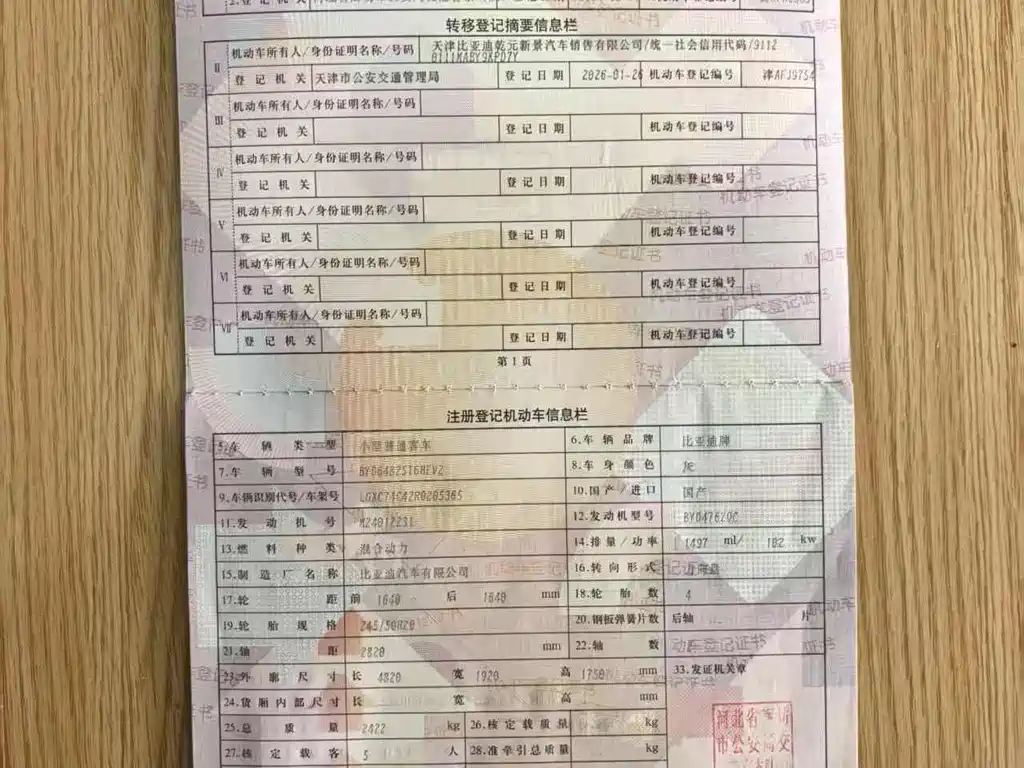 转移登记摘要信息栏
Ⅱ 机动车所有人/身份证明名称/号码 天津比亚迪乾元新景汽车销售有限公司/统一社会信用代码/9112
0111MABY9KPD7Y
登记机关 天津市公安交通管理局 登记日期 2026-01-26 机动车登记编号 津AFJ9754
Ⅲ 机动车所有人/身份证明名称/号码
登记机关 登记日期 机动车登记编号
Ⅳ 机动车所有人/身份证明名称/号码
登记机关 登记日期 机动车登记编号
Ⅴ 机动车所有人/身份证明名称/号码
登记机关 登记日期 机动车登记编号
Ⅵ 机动车所有人/身份证明名称/号码
登记机关 登记日期 机动车登记编号
Ⅶ 机动车所有人/身份证明名称/号码
登记机关 登记日期 机动车登记编号
第1页
注册登记机动车信息栏
5.车辆类型 小型普通客车 6.车辆品牌 比亚迪牌
7.车辆型号 BYD6482ST6HEV2 8.车身颜色 灰
9.车辆识别代号/车架号 LGXC74C42R0205365 10.国产/进口 国产
11.发动机号 12.发动机型号 BYD476ZQC
13.燃料种类 混合动力 14.排量/功率 1497 ml/ 102 kw
15.制造厂名称 比亚迪汽车有限公司 16.转向形式
17.轮距 前 1640 后 1640 mm 18.轮胎数 4
19.轮胎规格 245/50R20 20.钢板弹簧片数 后轴 片
21.轴距 2820 mm 22.轴数
23.外廓尺寸 长 4820 宽 1920 高 1750 mm 33.发证机关章
24.货厢内部尺寸 长 宽 高 mm
25.总质量 2422 kg 26.核定载质量 kg
27.核定载客 5 人 28.准牵引总质量 kg
河北省
市公安局交